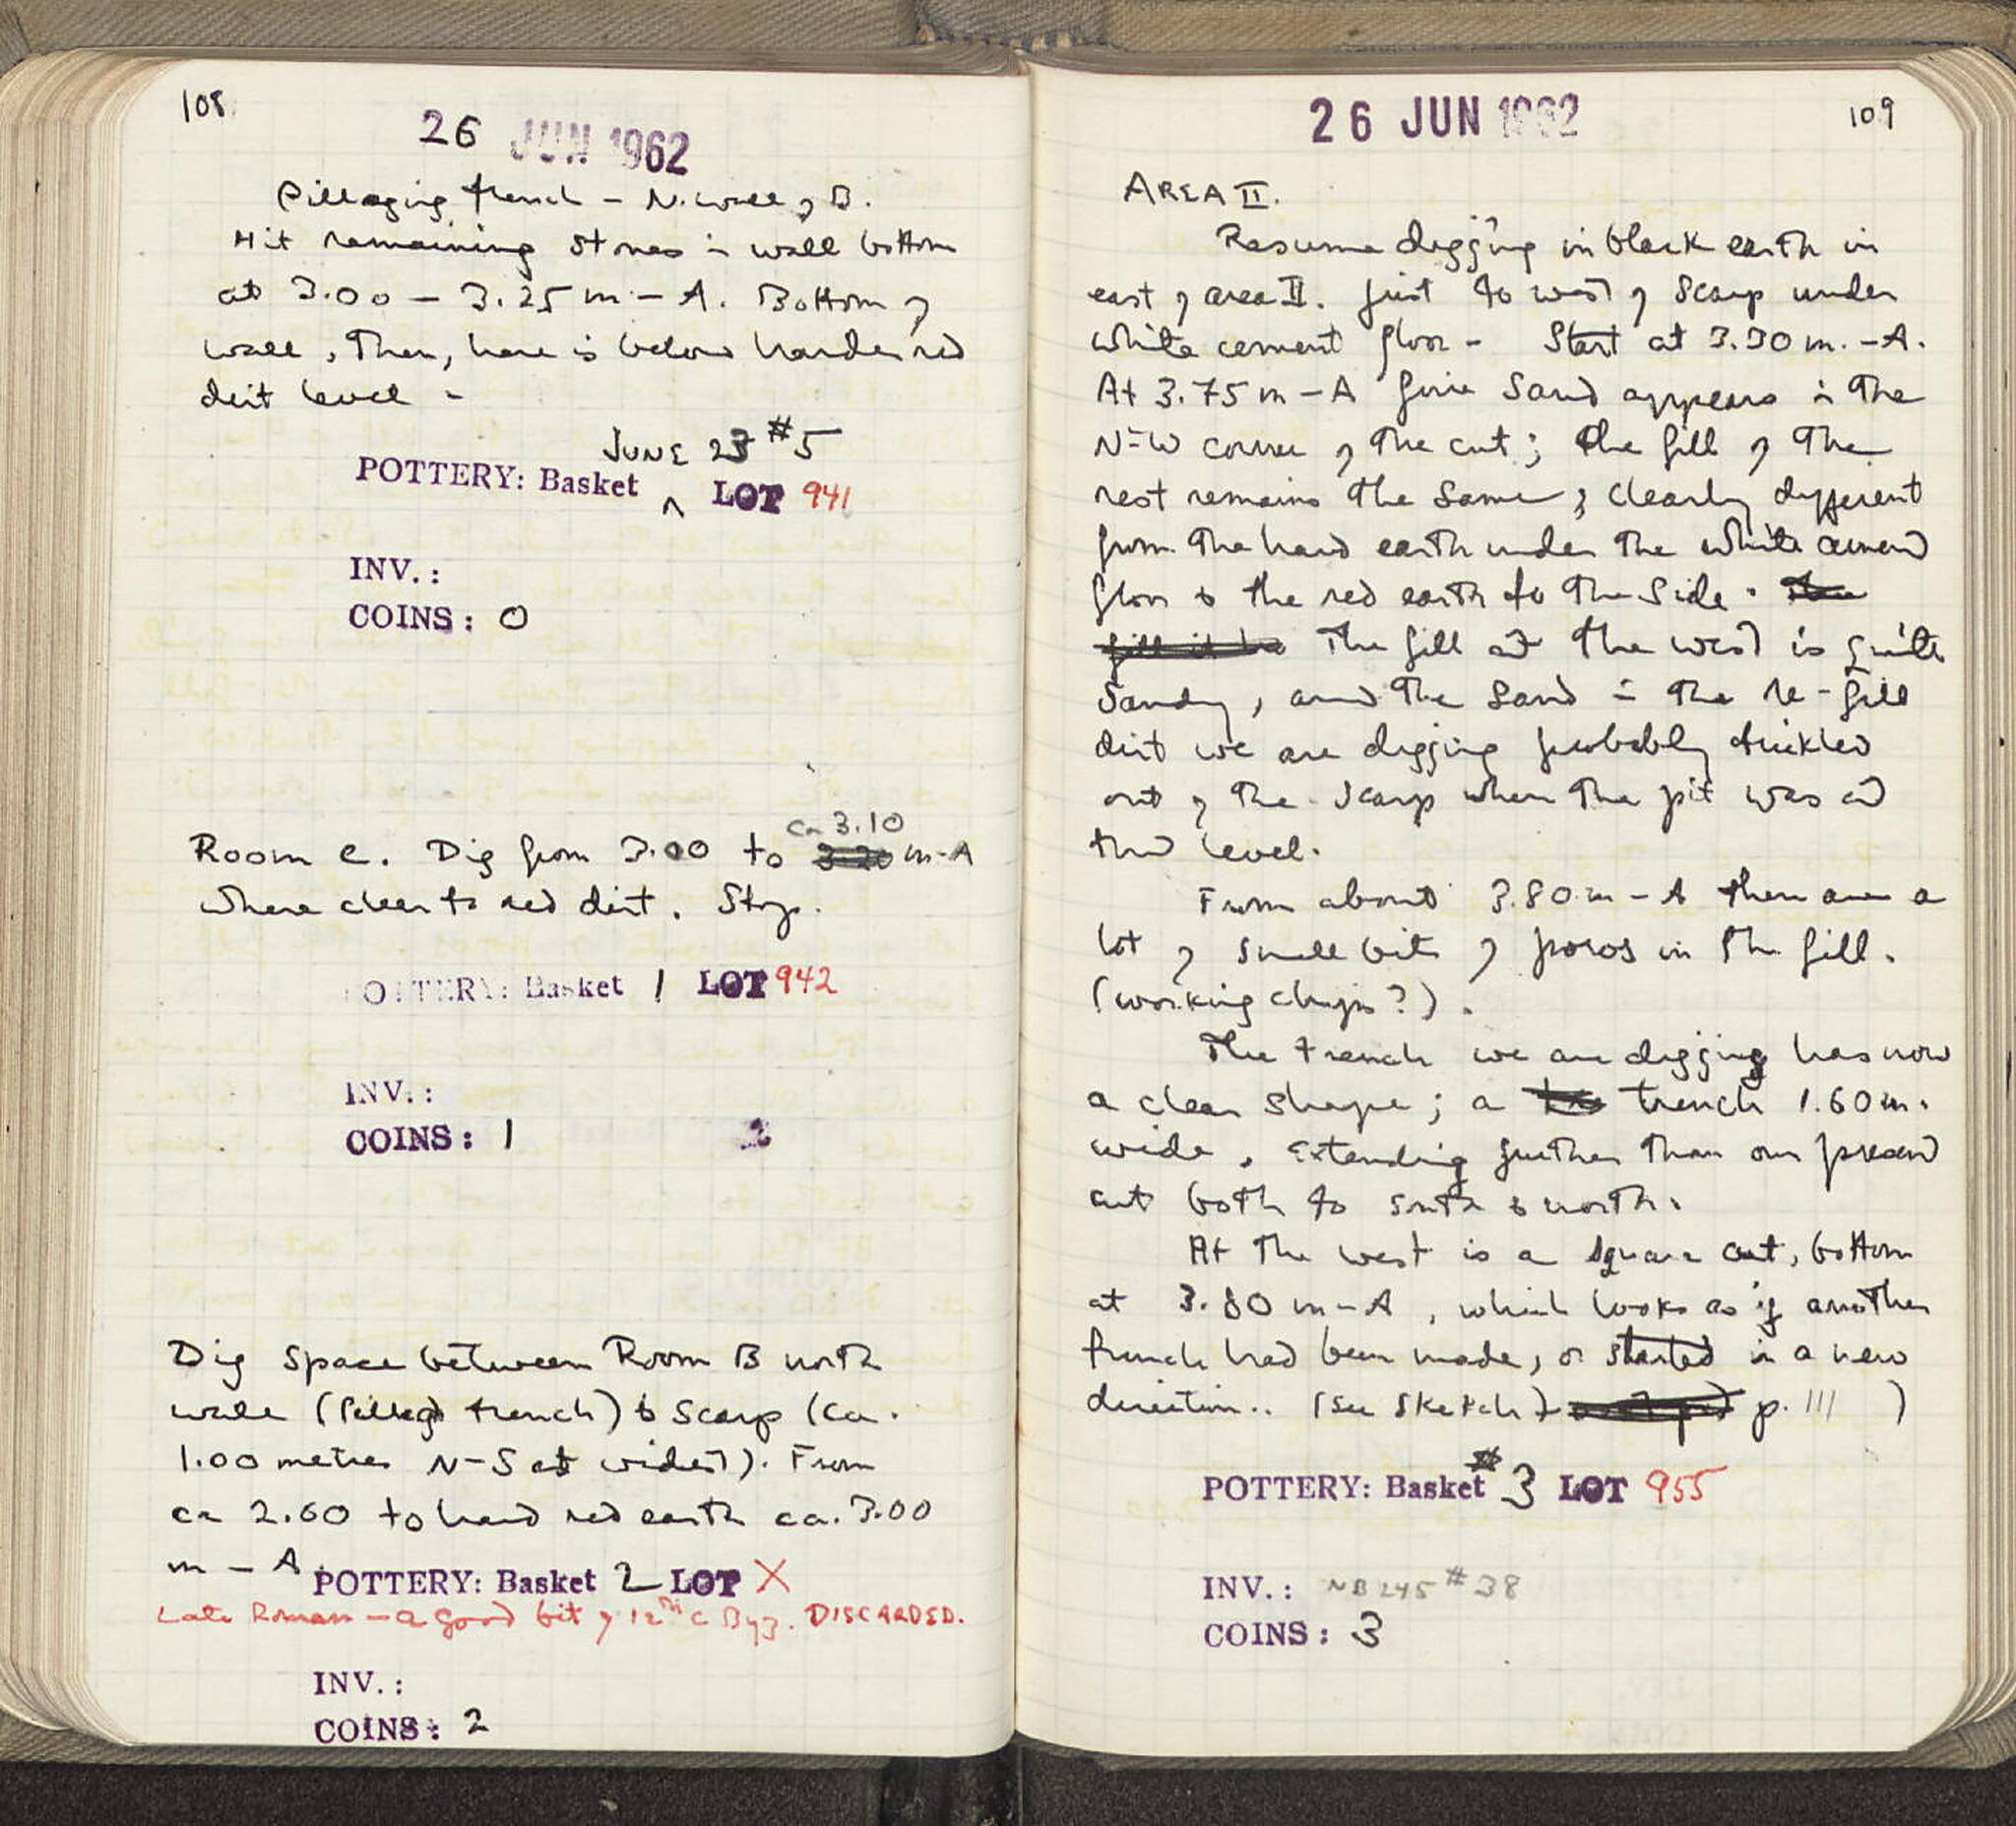 108
26 JUN 1962
Pillaging trench - N. wall of B.
Hit remaining stones in wall bottom
at 3.00 - 3.25 m - A. Bottom of
wall, then, here is below harder red
dirt level -
JUNE 23 #5
POTTERY: Basket ^ LOT 941
INV.:
COINS: 0
ca 3.10
Room C. Dig from 3.00 to 3.20 m-A
where clear to red dirt. Stop.
POTTERY: Basket 1 LOT 942
INV.:
COINS: 1 2
Dig space between Room B north
wall (Pillag'd trench) & scarp (ca.
1.00 metres N-S at widest). From
ca 2.60 to hard red earth ca. 3.00
m - A.
POTTERY: Basket 2 LOT X
Late Roman - a good bit of 12th c Byz. DISCARDED.
INV.:
COINS: 2
26 JUN 1962
109
AREA II.
Resume digging in black earth in
east of area II. just to west of scarp under
white cement floor - Start at 3.30 m. - A.
At 3.75 m - A fine sand appears in the
N-W corner of the cut; the fill of the
rest remains the same, clearly different
from the hard earth under the white cement
floor & the red earth to the side. The
fill it be The fill at the west is quite
sandy, and the sand in the re-fill
dirt we are digging probably trickled
out of the scarp when the pit was at
this level.
From about 3.80 m - A there are a
lot of small bits of poros in the fill.
(working chips?).
The trench we are digging has now
a clear shape; a trench 1.60 m.
wide, extending further than our present
cut both to south & north.
At the west is a square cut, bottom
at 3.80 m - A, which looks as if another
trench had been made, or started in a new
direction.. (see sketch) p. 111 )
POTTERY: Basket # 3 LOT 955
INV.: NB 245 #38
COINS: 3